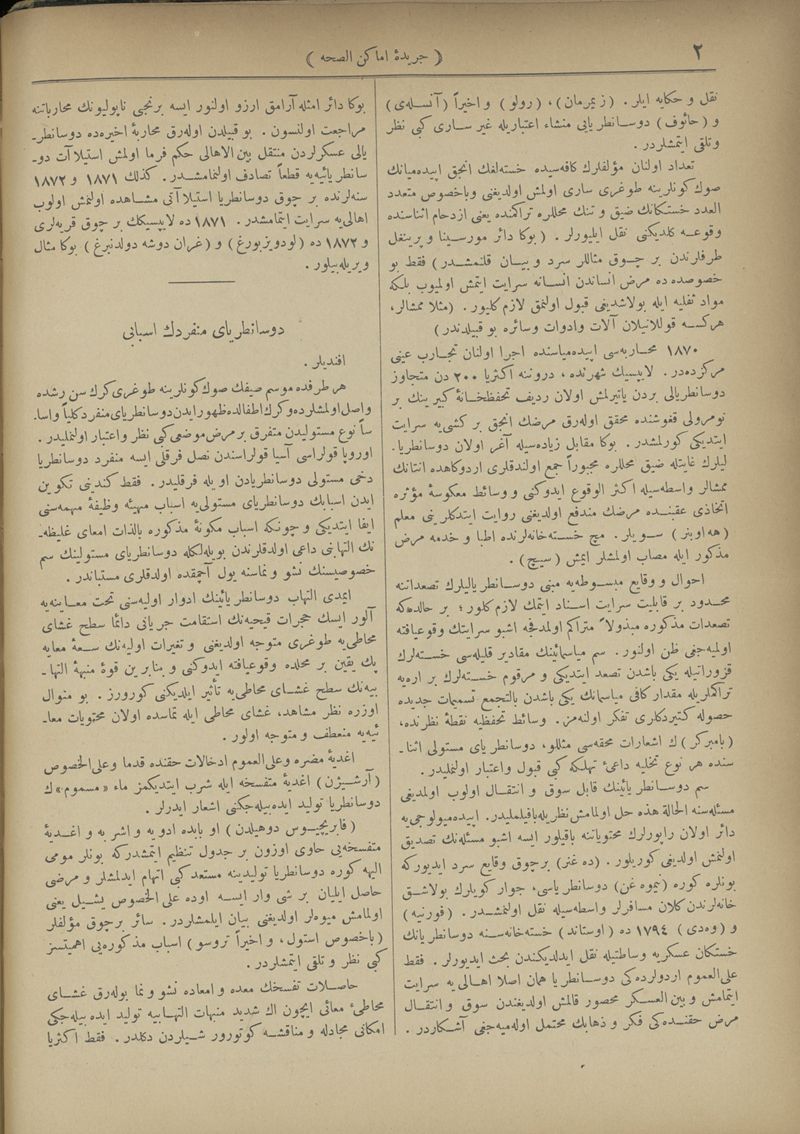 ٢
( جريدۀ اماكن الصحه )
نقل و حكايه ايلر . ( زيمرمان ) ، ( رولو ) و اخيراً ( آنسله‌ى )
و ( حائوف ) دوسانطريايى منشاء اعتباريله غير سارى كبى نظر
و تلقى ايتمشلردر .
تعداد اولنان مؤلفلرك كافه‌سيده خسته‌لغك انجق اپيده‌ميانك
صوك كونلرينه طوغرى سارى اولمش اولديغنى و باخصوص متعدد
العدد خستكانك ضيق و تنك محللره تراكمنده يعنى ازدحام اثناسنده
وقوعه كلديكنى نقل ايليورلر . ( بوكا دائر مورسينا و پرينغل
طرفلرندن بر چوق مثاللر سرد و بيان قلنمشدر ) فقط بو
خصوصده ده مرض انساندن انسانه سرايت ايتمش اولميوب بلكه
مواد ثفليه ايله بولاشديغى قبول اولنمق لازم كليور . ( مثلا ممشالر،
هركسه قوللانيلان آلات وادوات وسائره بو قبيلدندر )
١٨٧٠ محاربه‌سى اپيده‌مياسنده اجرا اولنان تجارب عينى
مركزده‌در . لايپسيك شهرنده ، دروننه اكثريا ٢٠٠ دن متجاوز
دوسانطريالى بردن ياتيرلمش اولان رديف تحفظخانۀ كبيرينك بر
نومرولى قغوشنده محقق اوله‌رق مرضك انجق بر كشى‌يه سرايت
ايتديكى كورلمشدر . بوكا مقابل زياده‌سيله آغر اولان دوسانطريا-
ليلرك غايتله ضيق محللره مجبوراً جمع اولندقلرى اردوكاهده انتانك
ممشالر واسطه‌سيله اكثر الوقوع ايدوكنى و وسائط معكوسۀ مؤثره
اتخاذى عقبنده مرضك مندفع اولديغنى روايت ايتدكلرينى معلم
( هه‌اوبنر ) سويلر . مچ خسته‌خانه‌لرنده اطبا و خدمه مرض
مذكور ايله مصاب اولمشلر ايمش ( سيچ ) .
احوال و وقايع مبسوطه‌يه مبنى دوسانطرياليلرك تصعداتنه
محدود بر قابليت سرايت اسناد ايتمك لازم كلور ؛ بر حالده‌كه
تصعدات مذكوره مبذولاً متراكم اولمدقجه اشبو سرايتك وقوعيافته
اوليه‌جغى ظن اولنور . سم مياسمائينك مقادير قليله‌سى خسته‌لرك
قزوراتيله يكى باشدن تصعد ايتديكى و مرقوم خسته‌لرك بر اره‌يه
تراكملريله مقدار كافى مياسمانك يكى باشدن بالتجمع تسممات جديده
حصوله كتيردكلرى تفكر اولنه‌مز . وسائط تحفظيه نقطۀ نظرنده،
( بامبركر ) ك اشعارات محقه‌سى مثللو ، دوسانطرياى مستولى اثنا-
سنده هر نوع تخليه داعئ تهلكه كبى قبول واعتبار اولنمليدر .
سم دوسانطريائينك قابل سوق و انتقال اولوب اولمديغى
مسئله‌سنه الحالة هذه حل اولمامش نظريله باقيلمليدر . اپيده‌ميولوجى‌يه
دائر اولان راپورلرك محتوياتنه باقيلور ايسه اشبو مسئله‌نك تصديق
اولنمش اولديغى كوريلور . ( ده‌غنر ) برچوق وقايع سرد ايديوركه
بونلره كوره ( نيموه غن ) دوسانطرياسى، جوار كويلرك بولاشق
خانه‌لرندن كلان مسافرلر واسطه‌سيله نقل اولنمشدر . ( فورنيه )
و ( وه‌دى ) ١٧٩٤ ده ( اوستاند ) خسته‌خانه‌سنه دوسانطريانك
خستكان عسكريه وساطتيله نقل ايدلديكندن بحث ايديورلر . فقط
على‌العموم اردولرده‌كى دوسانطريا همان اصلا اهالى‌يه سرايت
ايتمامش و بين العسكر محصور قالمش اولديغندن سوق و انتقال
مرض حقنده‌كى فكر و ذهابك محتمل اوله‌ميه‌جغى آشكاردر .
بوكا دائر امثله آرامق ارزو اولنور ايسه برنجى ناپوليونك محارباتنه
مراجعت اولنسون . بو قبيلدن اوله‌رق محاربۀ اخيره‌ده دوسانطر-
يالى عسكرلردن منتقل بين الاهالى حكم فرما اولمش استيلاآت دو-
سانطريائيه‌يه قطعاً تصادف اولنمامشدر . كذلك ١٨٧١ و ١٨٧٢
سنه‌لرنده بر چوق دوسانطريا استيلاآتى مشاهده اولنمش اولوب
اهالى‌يه سرايت ايتمامشدر . ١٨٧١ ده لايپسيكك بر چوق قريه‌لرى
و ١٨٧٢ ده ( لودويزبورغ ) و ( غران دوشه دولدنبرغ ) بوكا مثال
ويريله‌بيلور .
دوسانطرياى منفردك اسبابى
افنديلر .
هر طرفده موسم صيفك صوك كونلرينه طوغرى كرك سن رشده
واصل اولمشلرده و كرك اطفالده ظهور ايدن دوسانطرياى منفرد كلياً واسا-
ساً نوع مستوليدن متفرق بر مرض موضعى كبى نظر واعتبار اولنمليدر .
اوروپا قولراسى آسيا قولراسندن نصل فرقلى ايسه منفرد دوسانطريا
دخى مستولى دوسانطريادن اويله فرقليدر . فقط كندينى تكوين
ايدن اسبابك دوسانطرياى مستولى‌يه اسباب مهيئه وظيفۀ مهمه‌سنى
ايفا ايتديكى و چونكه اسباب مكونۀ مذكوره بالذات امعاى غليظه-
نك التهابنى داعى اولدقلرندن بويله‌لكله دوسانطرياى مستولينك سم
خصوصيسنك نشو و نماسنه يول آچمقده اولدقلرى مستباندر .
ايمدى التهاب دوسانطريائينك ادوار اوليه‌سنى تحت معاينه‌يه
آلور ايسك حجرات قيحيه‌نك استقامت جريانى دائما سطح غشاى
مخاطى‌يه طوغرى متوجه اولديغنى و تغيرات اوليه‌نك سعۀ معايه
پك يقين بر محلده وقوعيافته ايدوكنى و بنابرين قوۀ منبهۀ التها-
بيه‌نك سطح غشاى مخاطى‌يه تأثير ايلديكنى كورورز . بو منوال
اوزره نظر مشاهد، غشاى مخاطى ايله تماسده اولان محتويات معا-
ئيه‌يه منعطف و متوجه اولور .
اغديۀ مضره و على‌العموم ادخالات حقنده قدما و على‌الخصوص
( آرشيژن ) اغديۀ متفسخه ايله شرب ايتديكمز ماء « مسموم » ك
دوسانطريا توليد ايده‌بيله‌جكنى اشعار ايدرلر .
( فابريچيوس دوهيلدن ) او بابده ادويه و اشربه و اغديۀ
متفسخه‌يى حاوى اوزون بر جدول تنظيم ايتمشدركه بونلر مومى
اليهه كوره دوسانطريا توليدينه مستعد كبى اتهام ايدلمشلر و مرضى
حاصل ايليان بر شى وار ايسه اوده على‌الخصوص يشيل يعنى
اولمامش ميوه‌لر اولديغنى بيان ايلمشلردر . سائر برچوق مؤلفلر
( باخصوص استول ، و اخيراً تروسو ) اسباب مذكوره‌يى اهميتسز
كبى نظر و تلقى ايتمشلردر .
حاصلات تفسخك معده و امعاده نشو و نما بوله‌رق غشاى
مخاطئ معائى ايچون اك شديد منبهات التهابيه توليد ايده بيله‌جكى
امكانى مجادله و مناقشه كوتورور شيلردن دكلدر . فقط اكثريا